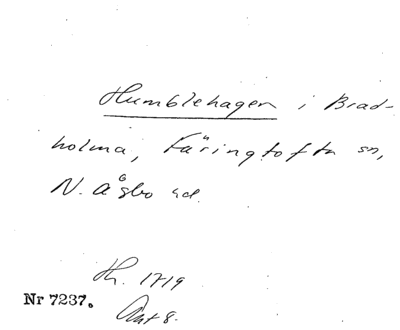 Humblehagen i Brad-
holma, Färingtofta sn,
N. Åsbo hd.
Hh. 1719
Akt 8.
Nr 7237.